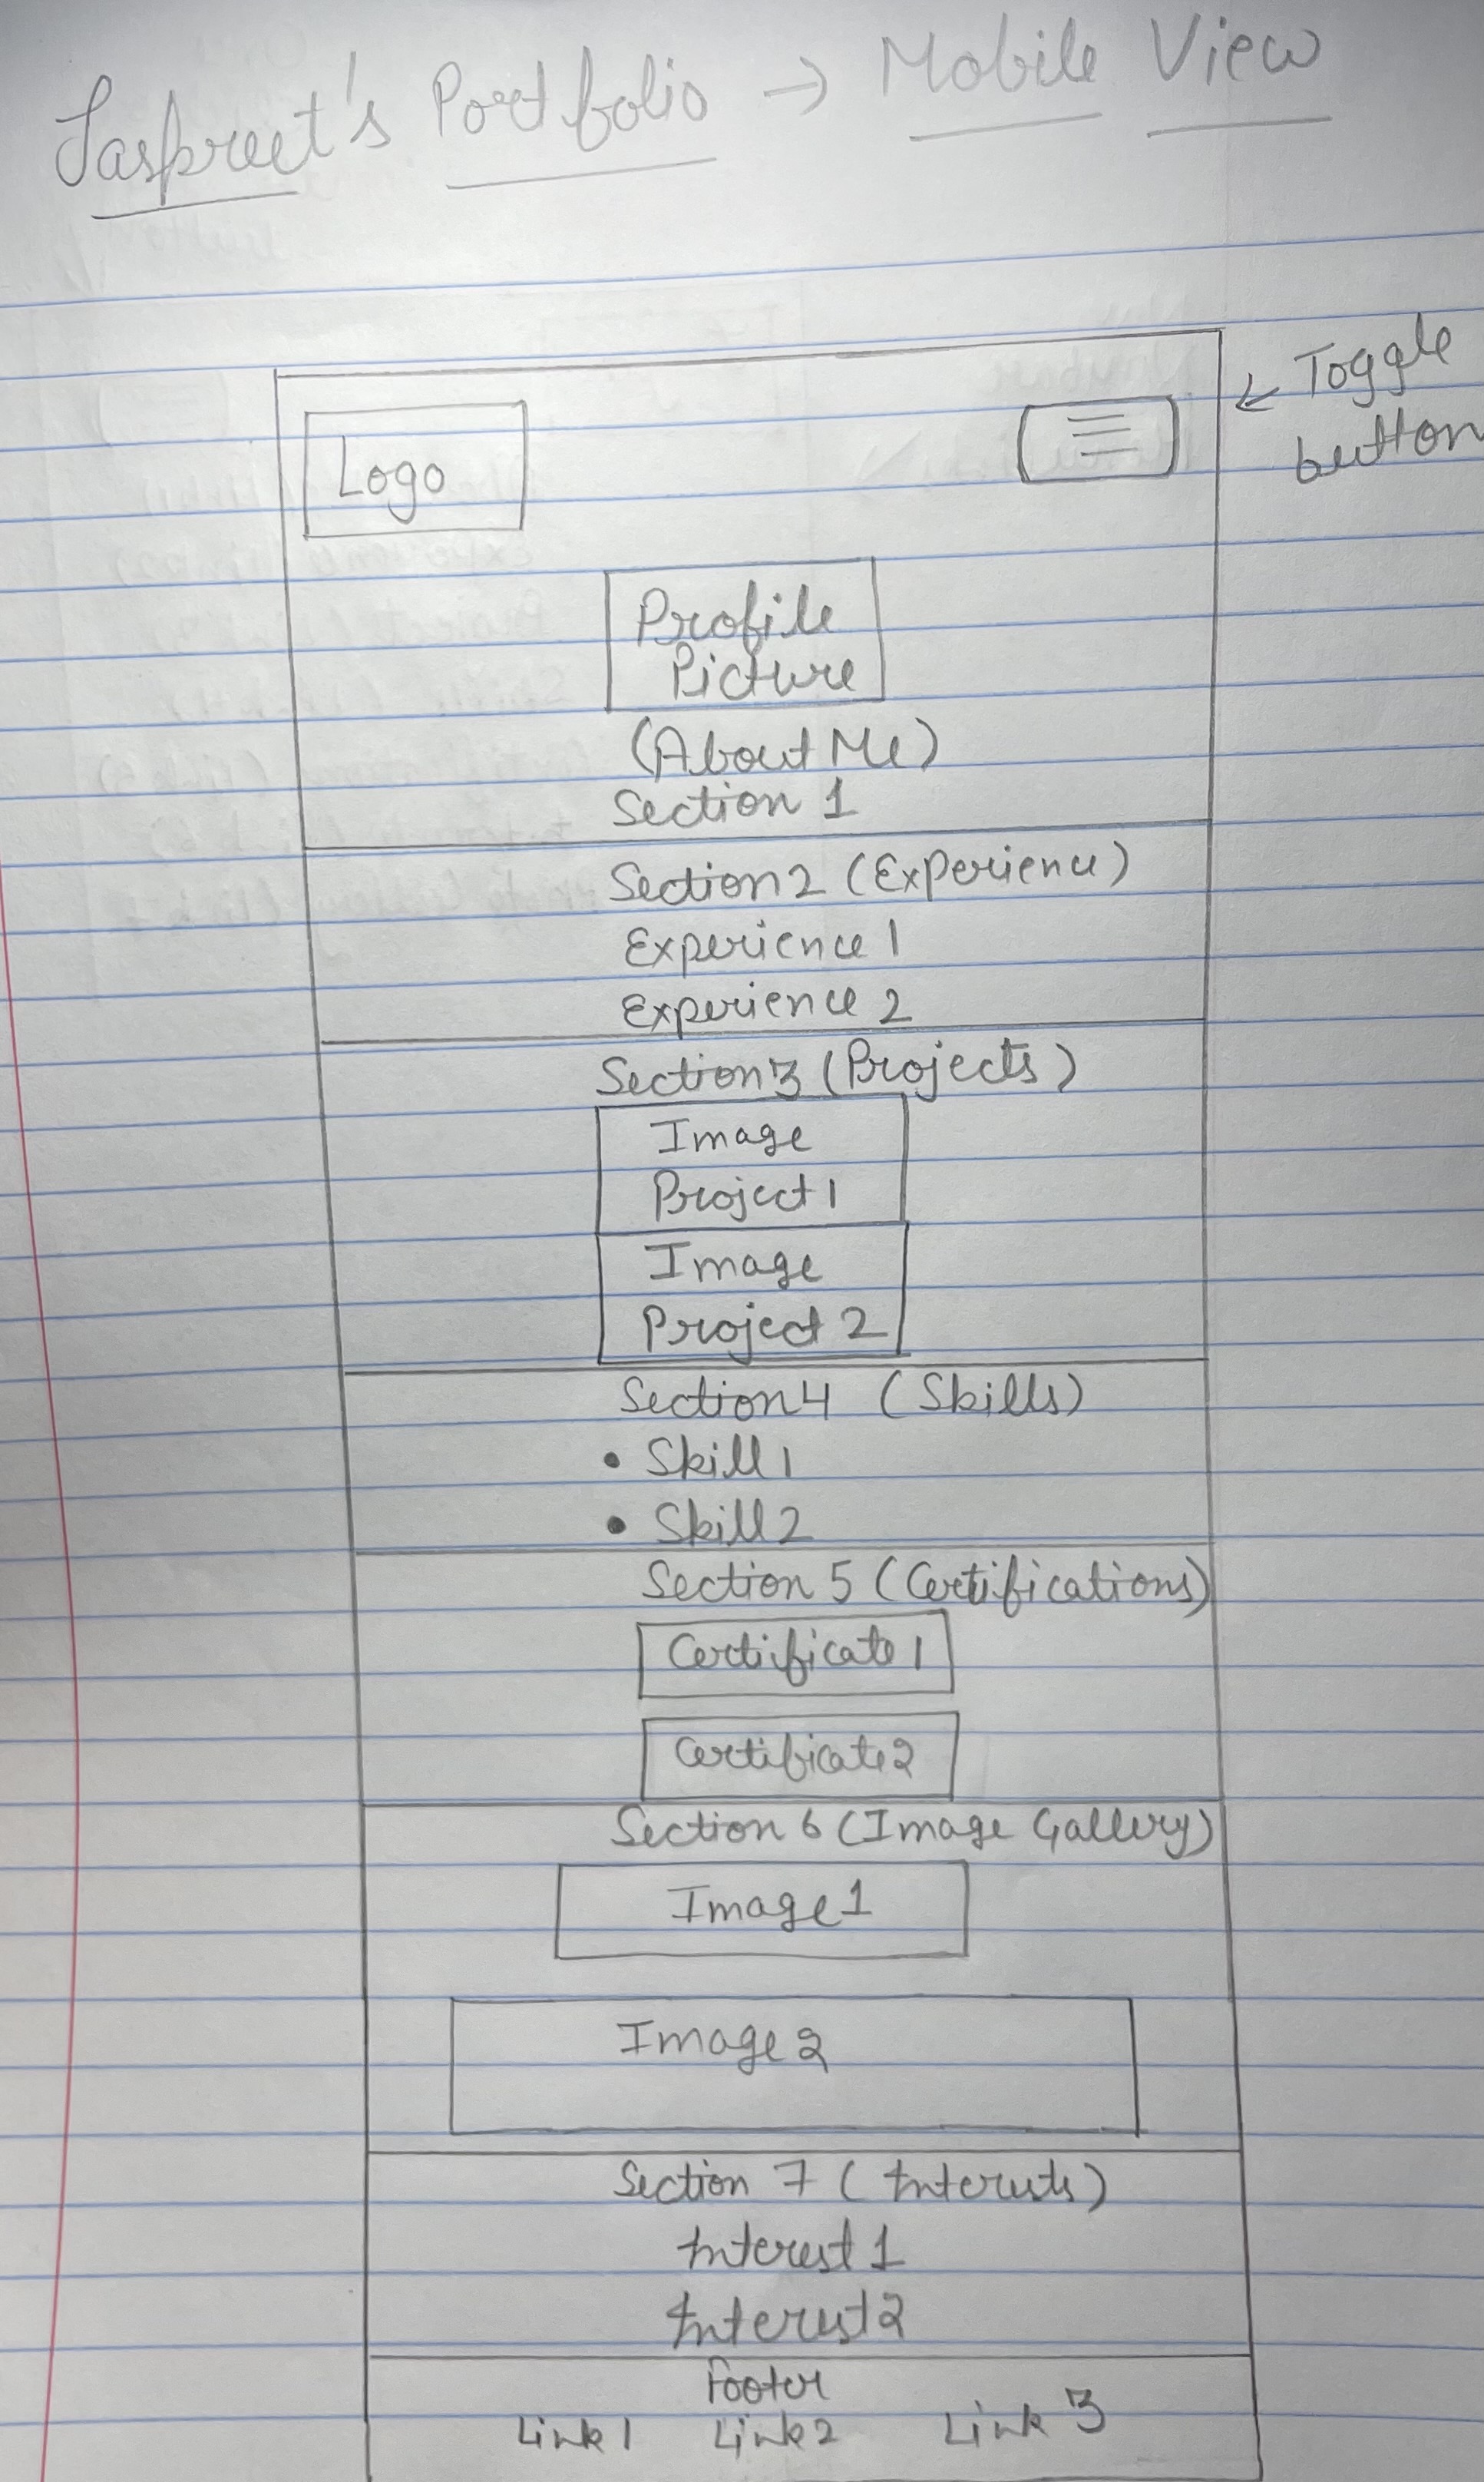 Jaspreet's Portfolio → Mobile View
← Toggle
button
Logo
Profile
Picture
(About Me)
Section 1
Section 2 (Experience)
Experience 1
Experience 2
Section 3 (Projects)
Image
Project 1
Image
Project 2
Section 4 (Skills)
• Skill 1
• Skill 2
Section 5 (Certifications)
Certificate 1
Certificate 2
Section 6 (Image Gallery)
Image 1
Image 2
Section 7 (Interests)
Interest 1
Interest 2
Footer
Link 1 Link 2 Link 3